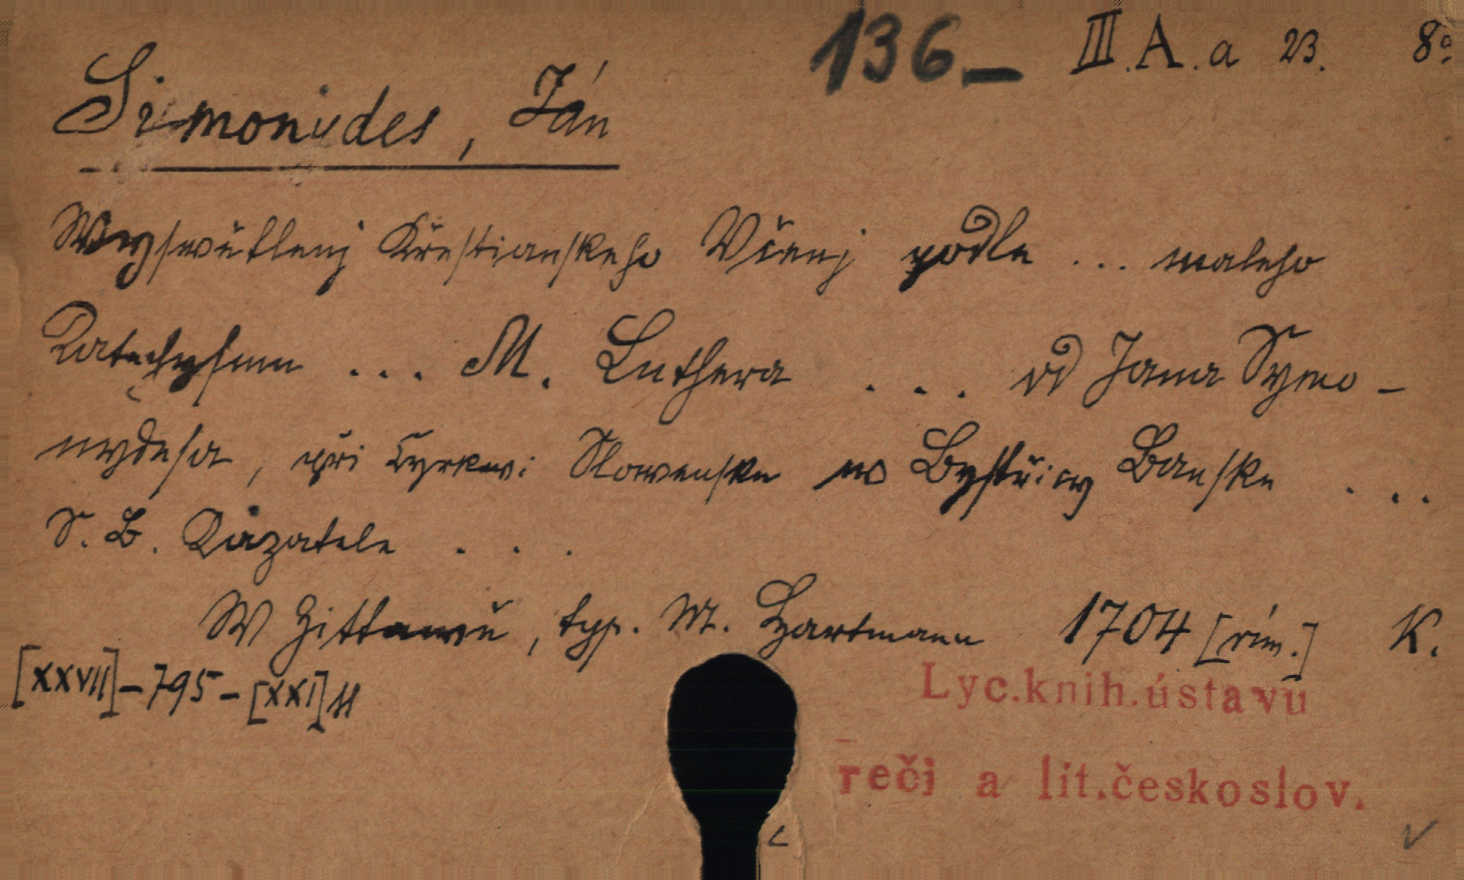 136 — III. A. a 23. 8°
Simonides, Ján
Wyswětlenj Křestianskeho Včenj podle ... maleho
Katechysmu ... M. Luthera ... od Jana Symo-
nydesa, při Cyrkwi Slowenske w Bystřicy Banske ...
S. B. Kázatele ...
W Zittawě, typ. M. Hartmann 1704 [rím.] K.
[XXVII]-795-[XXI] ll
Lyc.knih.ústavu
reči a lit.českoslov.